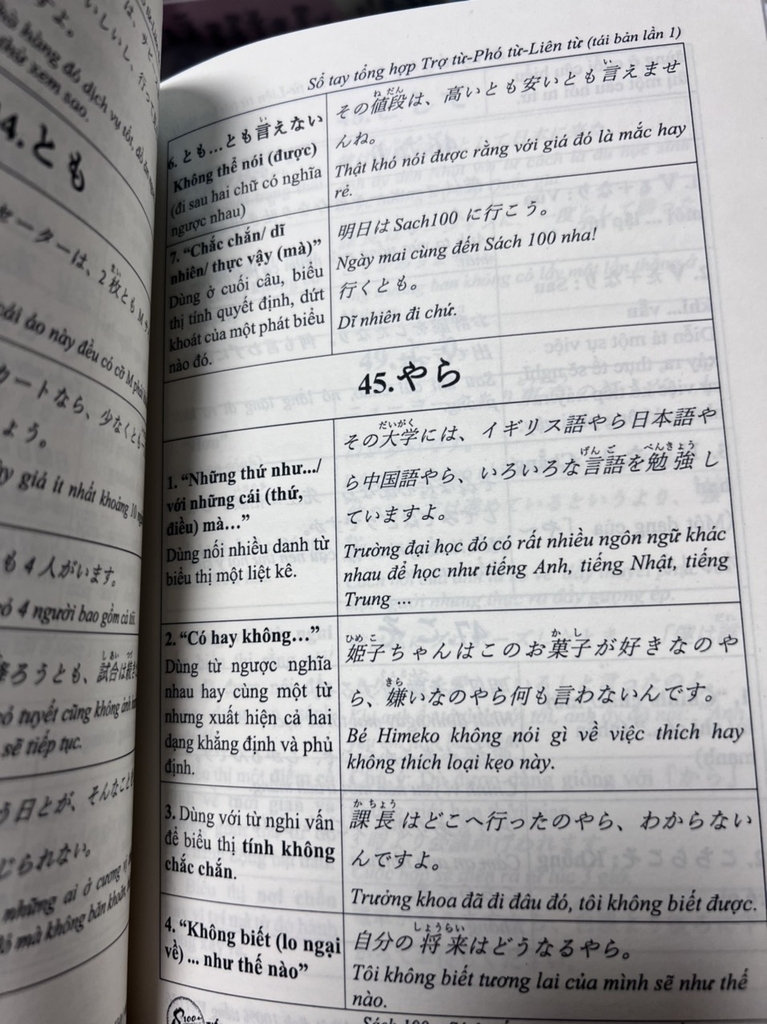 Sổ tay tổng hợp Trợ từ-Phó từ-Liên từ (tái bản lần 1)
6. とも…とも言えない
Không thể nói (được)
(đi sau hai chữ có nghĩa
ngược nhau)
その値段は、高いとも安いとも言えませ
んね。
Thật khó nói được rằng với giá đó là mắc hay
rẻ.
7. “Chắc chắn/ dĩ
nhiên/ thực vậy (mà)”
Dùng ở cuối câu, biểu
thị tính quyết định, dứt
khoát của một phát biểu
nào đó.
明日は Sach100 に行こう。
Ngày mai cùng đến Sách 100 nha!
行くとも。
Dĩ nhiên đi chứ.
45.やら
1. “Những thứ như.../
với những cái (thứ,
điều) mà…”
Dùng nối nhiều danh từ
biểu thị một liệt kê.
その大学には、イギリス語やら日本語や
ら中国語やら、いろいろな言語を勉強し
ていますよ。
Trường đại học đó có rất nhiều ngôn ngữ khác
nhau để học như tiếng Anh, tiếng Nhật, tiếng
Trung ...
2. “Có hay không…”
Dùng từ ngược nghĩa
nhau hay cùng một từ
nhưng xuất hiện cả hai
dạng khẳng định và phủ
định.
姫子ちゃんはこのお菓子が好きなのや
ら、嫌いなのやら何も言わないんです。
Bé Himeko không nói gì về việc thích hay
không thích loại kẹo này.
3. Dùng với từ nghi vấn
để biểu thị tính không
chắc chắn.
課長はどこへ行ったのやら、わからない
んですよ。
Trưởng khoa đã đi đâu đó, tôi không biết được.
4. “Không biết (lo ngại
về) ... như thế nào”
自分の将来はどうなるやら。
Tôi không biết tương lai của mình sẽ như thế
nào.
4.とも
セーターは、2枚とも M サ
cái áo này đều có cỡ M
カートなら、少なくとも
ょう。
giá ít nhất khoảng 10
も 4 人がいます。
4 người bao gồm cả tôi.
降ろうとも、試合は
tuyết cũng không
sẽ tiếp tục.
う日とが、そんなこと
じられない。
những ai ở cương vị
mà không băn khoăn